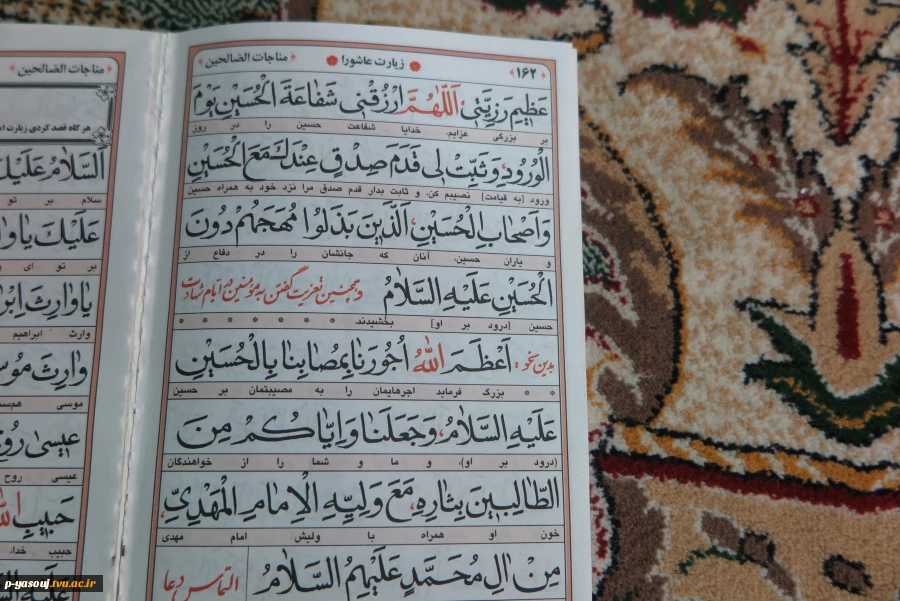 ﴿۱۶۲﴾ زیارت عاشورا ﴿مناجات الصالحین﴾
عَظیمِ رَزِیَّتی، اَللّٰهُمَّ ارْزُقْنی شَفاعَةَ الْحُسَیْنِ یَوْمَ
بر بزرگی عزایم. خدایا شفاعت حسین را در روز
الْوُرُودِ، وَ ثَبِّتْ لی قَدَمَ صِدْقٍ عِنْدَكَ مَعَ الْحُسَیْنِ
ورود [به قیامت] نصیبم کن، و ثابت بدار قدم صدق مرا نزد خود به همراه حسین
وَ اَصْحابِ الْحُسَیْنِ، اَلَّذینَ بَذَلُوا مُهَجَهُمْ دُونَ
و یاران حسین، آنان که جانشان را در دفاع از
الْحُسَیْنِ عَلَیْهِ السَّلامُ و همچنین تعزیت گفتن به مؤمنین در ایام شهادت
حسین [درود بر او] بخشیدند. * * * * * * *
بدین نحو: اَعْظَمَ اللّٰهُ اُجُورَنا بِمُصابِنا بِالْحُسَیْنِ
* * بزرگ فرماید اجرهایمان را به مصیبتمان بر حسین
عَلَیْهِ السَّلامُ، وَ جَعَلَنا وَ اِیّاکُمْ مِنَ
(درود بر او)، و ما و شما را از خواهندگان
الطّالِبینَ بِثارِهِ، مَعَ وَلِیِّهِ الْاِمامِ الْمَهْدِیِّ،
خون او همراه با ولیش امام مهدی
مِنْ الِ مُحَمَّدٍ عَلَیْهِمُ السَّلامُ التماس دعا
﴿مناجات الصالحین﴾
هر گاه قصد کردی زیارت
اَلسَّلامُ عَلَیْكَ
سلام بر تو
عَلَیْكَ یا وا
بر تو ای
یا وارِثَ اِبْرا
وارث ابراهیم
وارِثَ مُوسـ
موسی هم‌سـ
عیسی رُو
عیسی روح
حَبیبِ اللّٰ
حبیب خدا،
عَلَیْهِ
p-yasouj.tvu.ac.ir